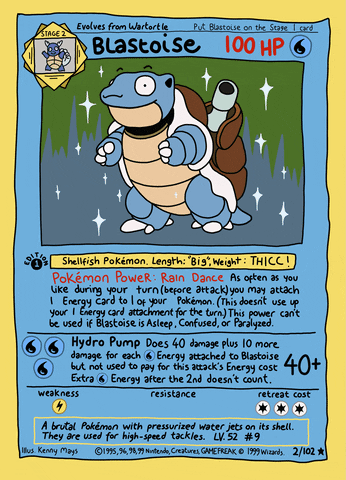 Evolves from Wartortle
Put Blastoise on the Stage 1 card
STAGE 2
Blastoise
100 HP
EDITION
1
Shellfish Pokémon. Length: "Big", Weight: THICC!
Pokémon Power: Rain Dance As often as you
like during your turn (before attack) you may attach
1 Energy card to 1 of your Pokémon. (This doesn't use up
your 1 Energy card attachment for the turn.) This power can't
be used if Blastoise is Asleep, Confused, or Paralyzed.
Hydro Pump Does 40 damage plus 10 more
damage for each Energy attached to Blastoise
but not used to pay for this attack's Energy cost
Extra Energy after the 2nd doesn't count.
40+
weakness
resistance
retreat cost
A brutal Pokémon with pressurized water jets on its shell.
They are used for high-speed tackles. LV. 52 #9
Illus. Kenny Mays
©1995, 96, 98, 99 Nintendo, Creatures, GAMEFREAK © 1999 Wizards.
2/102 ★